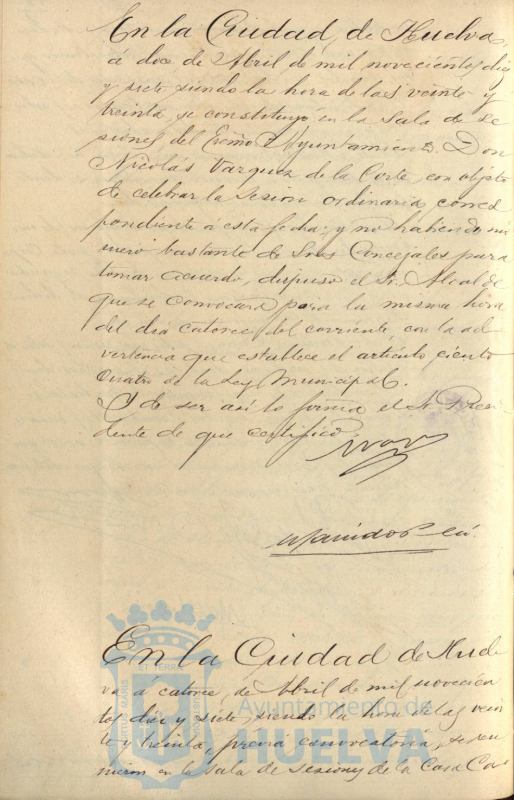 En la Ciudad de Huelva,
á doce de Abril de mil novecientos diez
y siete siendo la hora de las veinte y
treinta, se constituyó en la Sala de se
siones del Excmo Ayuntamiento. Don
Nicolás Vazquez de la Corte, con objeto
de celebrar la sesion ordinaria corres
pondiente á esta fecha; y no habiendo nú
mero bastante de Sres Concejales para
tomar acuerdo, dispuso el Sr. Alcalde
que se convocara para la misma hora
del dia catorce del corriente, con la ad
vertencia que establece el artículo ciento
cuatro de la Ley Municipal.
Y de ser así lo firma el Sr. Presi
dente de que certifico.
En la Ciudad de Huel
va á catorce de Abril de mil novecien
tos diez y siete, siendo la hora de las vein
te y treinta, previa convocatoria, se reu
nieron en la Sala de sesiones de la Casa Con
Ayuntamiento de
HUELVA